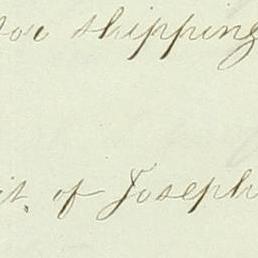 for shipping
it. of Joseph